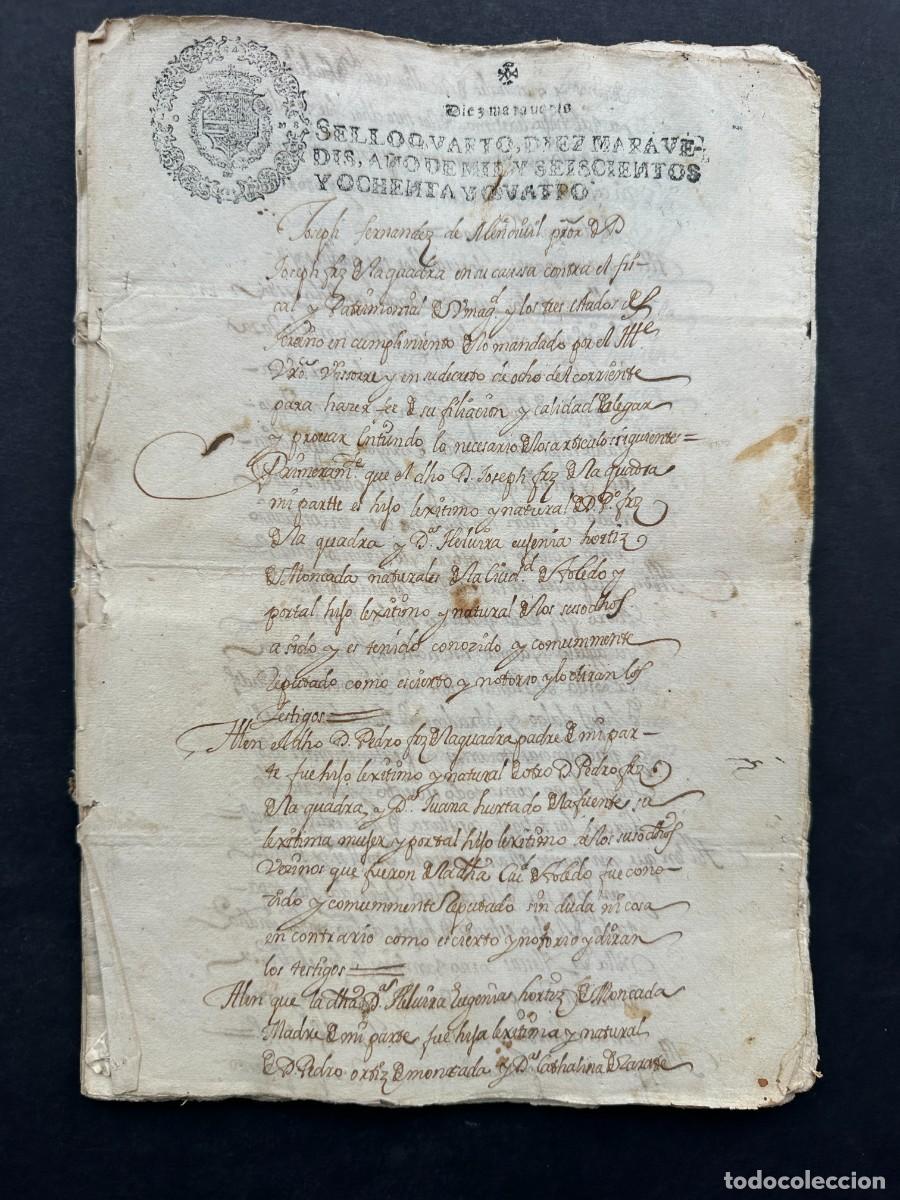 Diez maravedis
SELLO QVARTO, DIEZ MARAVE-
DIS, AÑO DE MIL Y SEISCIENTOS
Y OCHENTA Y QVATRO
Joseph Fernandez de Mendivil pror de D
Joseph frz de la quadra en su causa contra el fis-
cal y Patrimonial de S mag. y los tres estados deste
Reino en cumplimiento de lo mandado por el Ille
Vro y en su decreto de ocho del corriente
para hazer fee de su filiacion y calidad alegar
y provar lo necesario de los articulos siguientes =
Primeramte. que el dho D. Joseph frz de la quadra
mi partte es hijo lexitimo y natural de D Po. frz
de la quadra y Da. Helvira eusenia hortiz
de Moncada naturales de la Ciud. de Toledo y
por tal hijo lexitimo y natural de los susodhos
a sido y es tenido conozido y comummente
Reputado como es cierto y notorio y lo diran los
testigos =
Iten el dho D. Pedro frz de la quadra padre de mi par-
te fue hijo lexitimo y natural de otro D. Pedro frz
de la quadra y Da. Juana hurtado de la fuente su
lexitima mujer y por tal hijo lexitimo de los susodhos
Vezinos que fueron de la dha Ciud de Toledo fue cono-
zido y comummente Reputado sin duda ni cosa
en contrario como es cierto y notorio y diran
los testigos =
Iten que la dha Da. Helvira Eugenia hortiz de Moncada
Madre de mi parte fue hija lexitima y natural
de D Pedro ortiz de moncada y Da. Cathalina de Zarate
todocoleccion